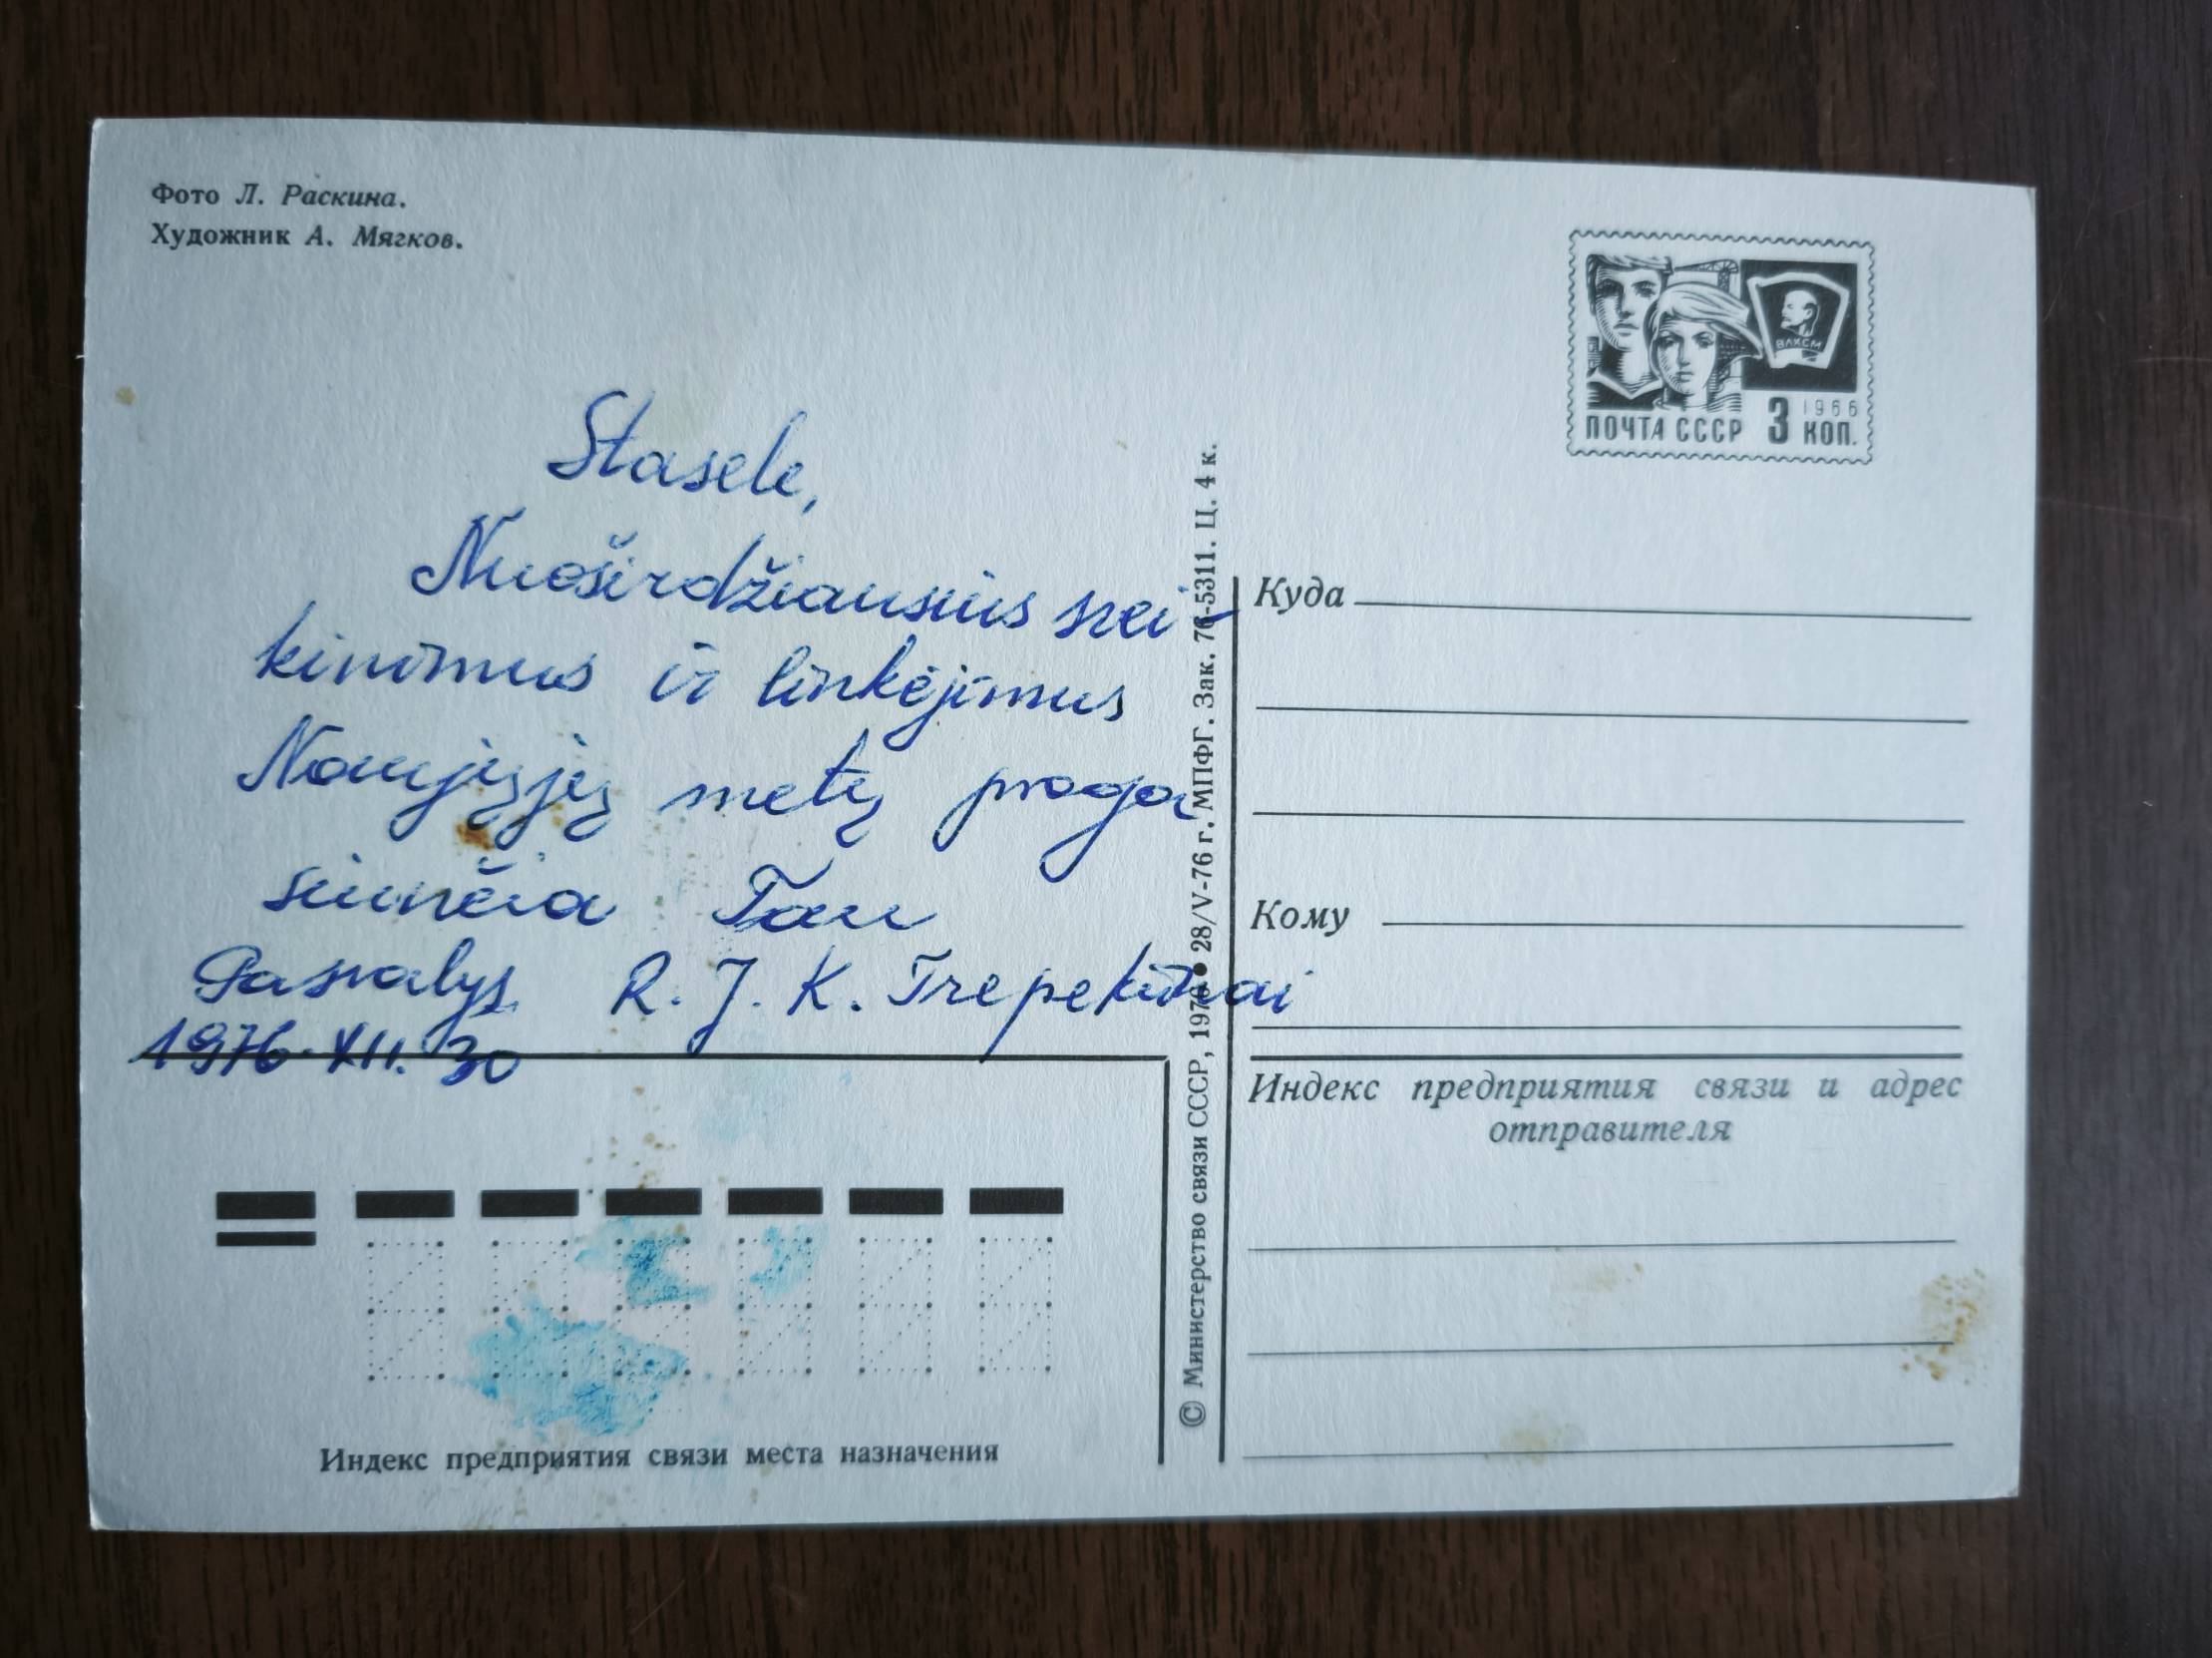 Фото Л. Раскина.
Художник А. Мягков.
Stasele,
Nuoširdžiausius svei-
kinimus ir linkėjimus
Naujųjų metų proga
siunčia Tau
Pasvalys R. J. K. Trepekūnai
1976.XII.30
Индекс предприятия связи места назначения
© Министерство связи СССР, 1976 • 28/V-76 г. МПФГ. Зак. 76-5311. Ц. 4 к.
ВЛКСМ
1966
ПОЧТА СССР 3 КОП.
Куда
Кому
Индекс предприятия связи и адрес
отправителя